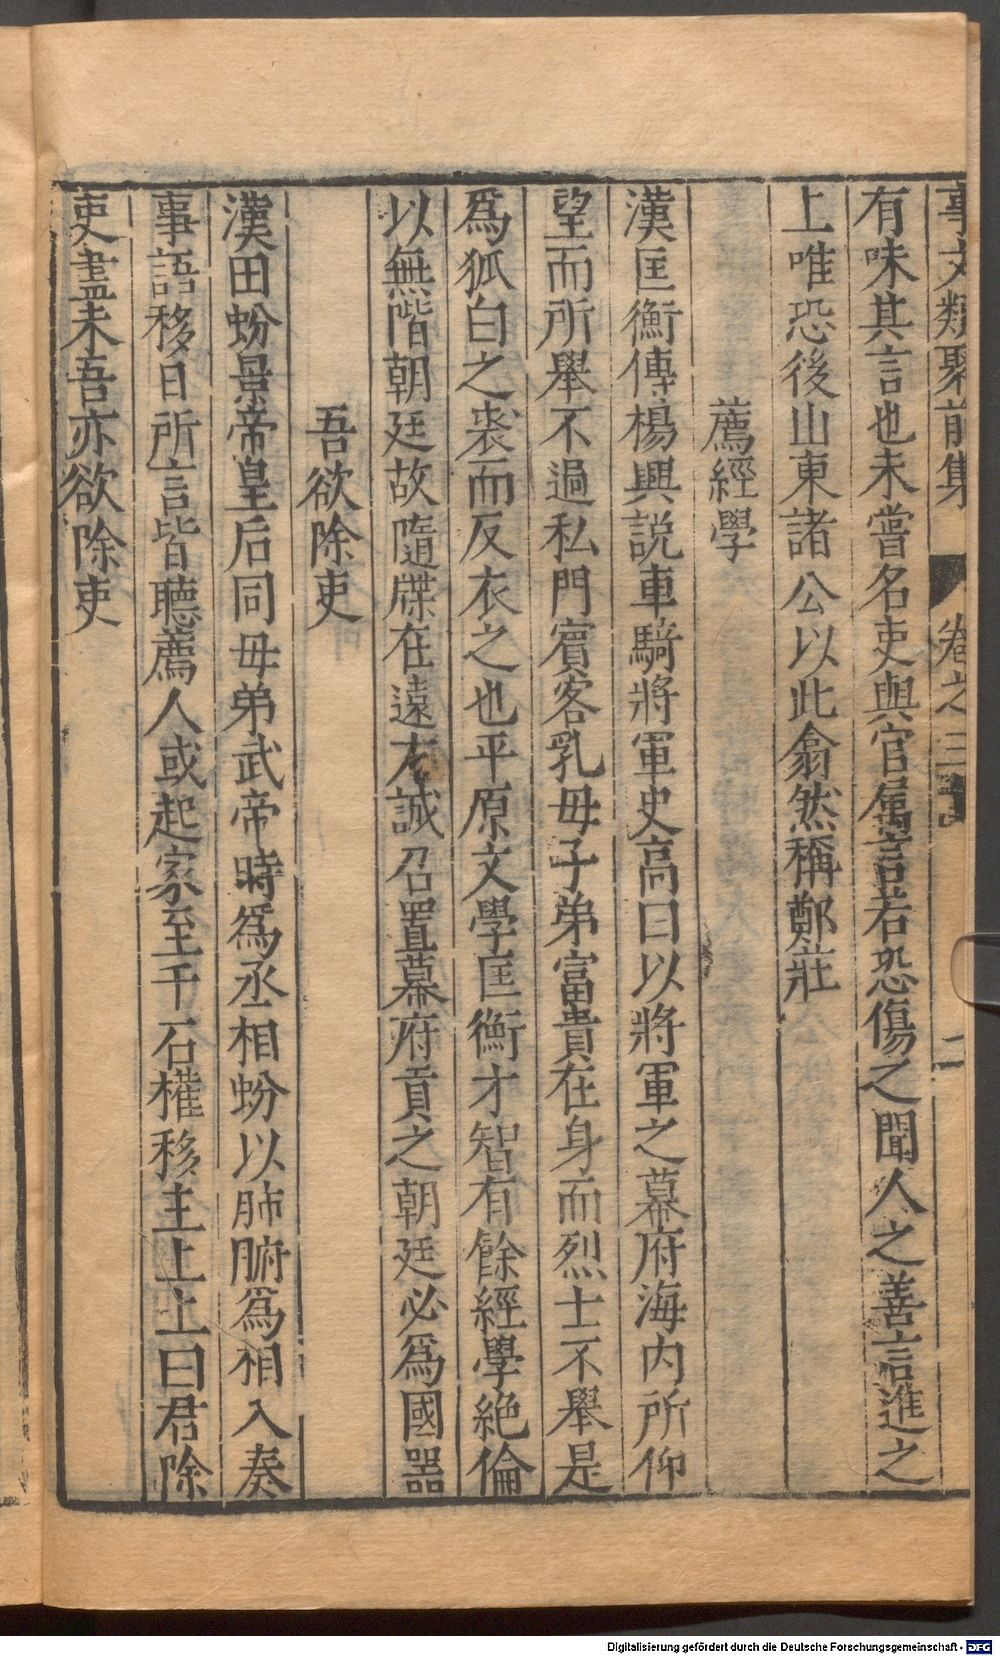 事文類聚前集 卷之三 二
有味其言也未嘗名吏與官屬言若恐傷之聞人之善言進之
上唯恐後山東諸公以此翕然稱鄭莊
薦經學
漢匡衡傳楊興説車騎將軍史高曰以將軍之幕府海内所仰
望而所舉不過私門賓客乳母子弟富貴在身而烈士不舉是
爲狐白之裘而反衣之也平原文學匡衡才智有餘經學絶倫
以無階朝廷故隨牒在遠方誠召置幕府貢之朝廷必爲國器
吾欲除吏
漢田蚡景帝皇后同母弟武帝時爲丞相蚡以肺腑爲相入奏
事語移日所言皆聽薦人或起家至千石權移主上上曰君除
吏盡未吾亦欲除吏
Digitalisierung gefördert durch die Deutsche Forschungsgemeinschaft - DFG